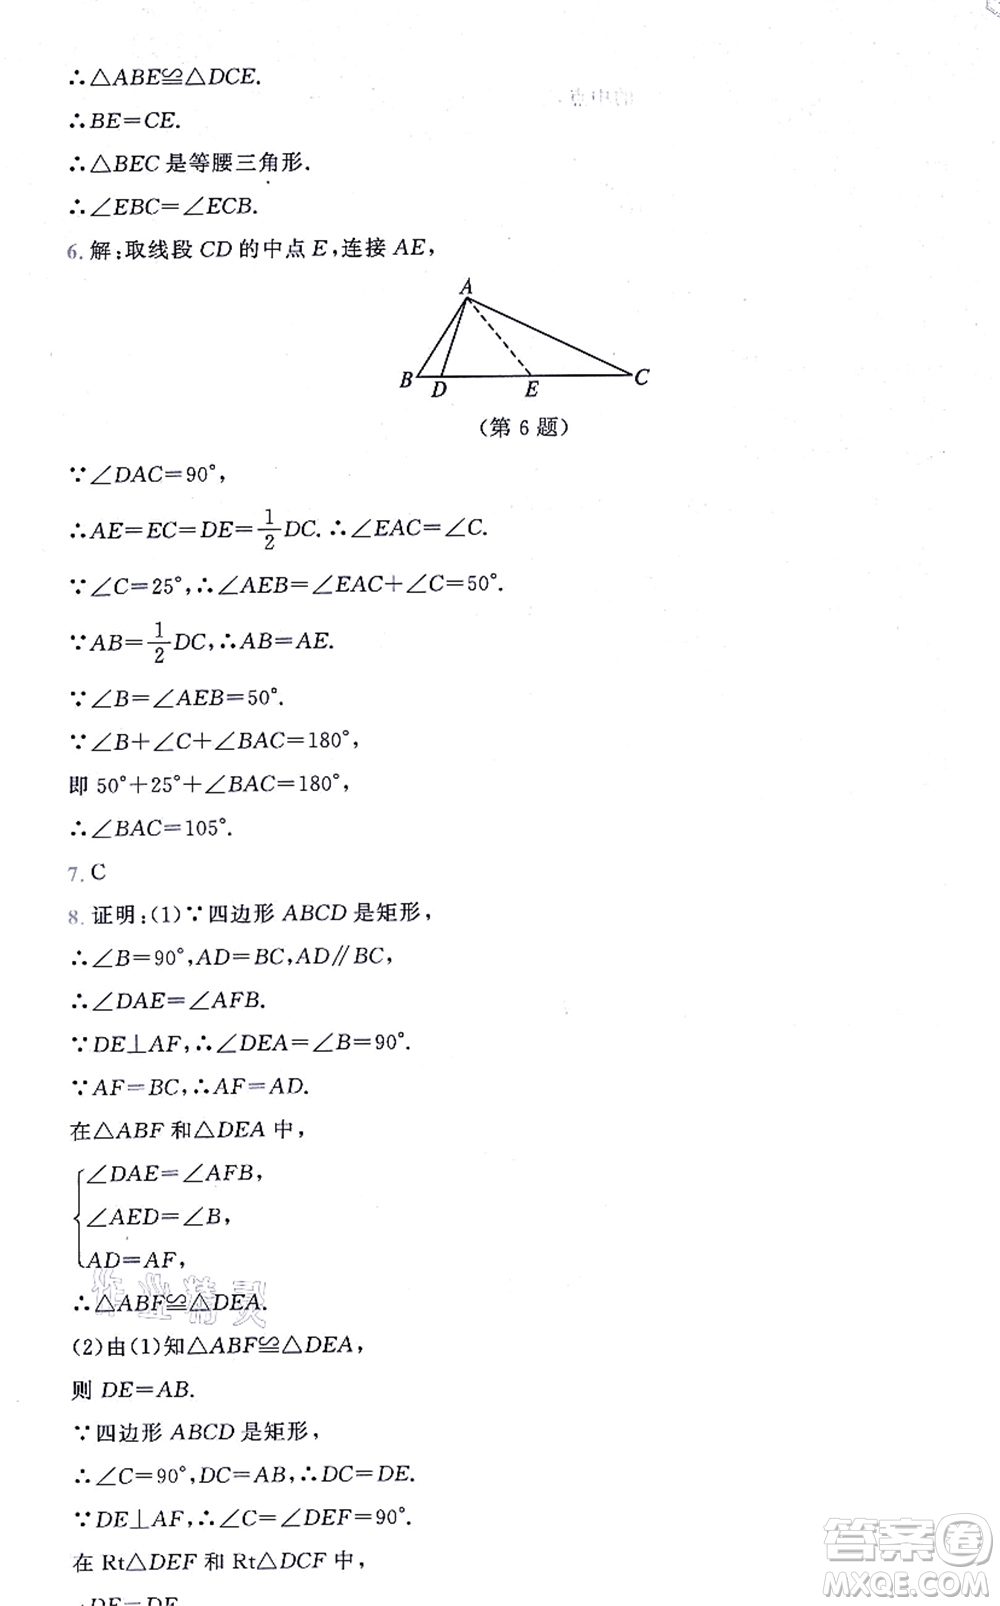 ∴△ABE≌△DCE.
∴BE=CE.
∴△BEC是等腰三角形.
∴∠EBC=∠ECB.
6. 解:取线段CD的中点E,连接AE,
A
B
D
E
C
(第6题)
∵∠DAC=90°,
∴AE=EC=DE=1/2DC.∴∠EAC=∠C.
∵∠C=25°,∴∠AEB=∠EAC+∠C=50°.
∵AB=1/2DC,∴AB=AE.
∵∠B=∠AEB=50°.
∵∠B+∠C+∠BAC=180°,
即50°+25°+∠BAC=180°,
∴∠BAC=105°.
7. C
8. 证明:(1)∵四边形ABCD是矩形,
∴∠B=90°,AD=BC,AD∥BC,
∴∠DAE=∠AFB.
∵DE⊥AF,∴∠DEA=∠B=90°.
∵AF=BC,∴AF=AD.
在△ABF和△DEA中,
∠DAE=∠AFB,
∠AED=∠B,
AD=AF,
∴△ABF≌△DEA.
作业精灵
(2)由(1)知△ABF≌△DEA,
则DE=AB.
∵四边形ABCD是矩形,
∴∠C=90°,DC=AB,∴DC=DE.
∵DE⊥AF,∴∠C=∠DEF=90°.
在Rt△DEF和Rt△DCF中,
答案卷
MXQE.COM